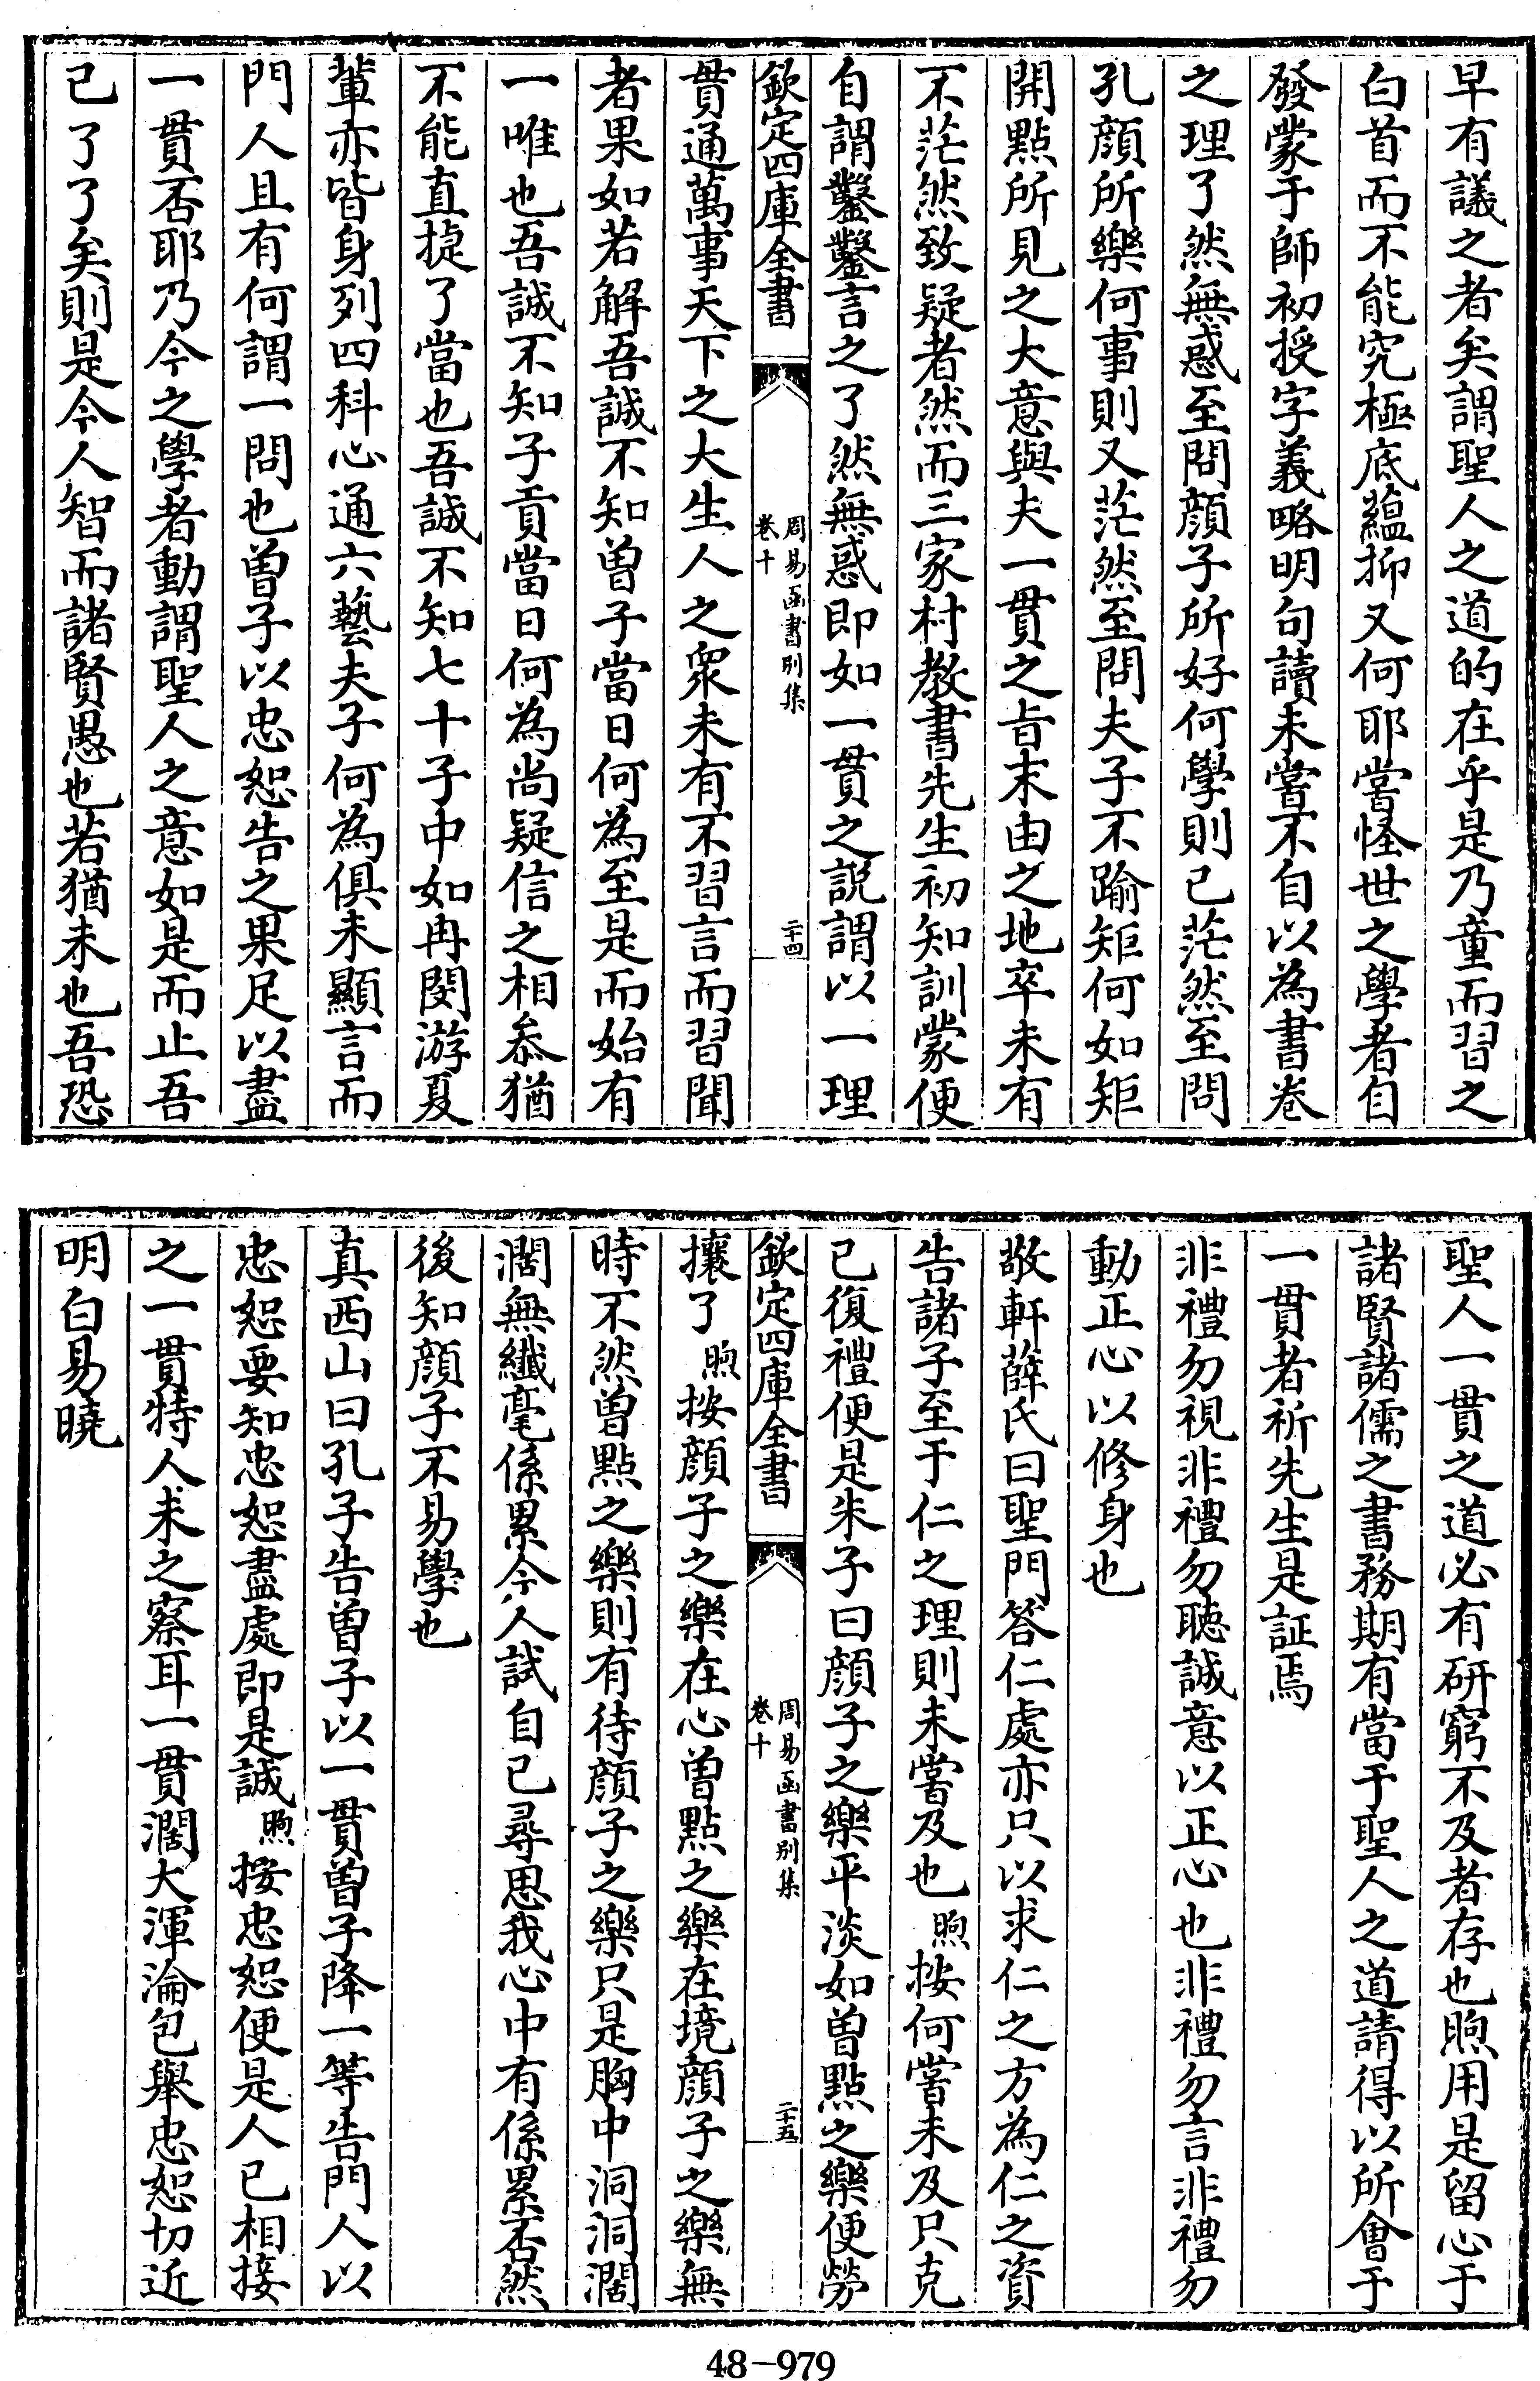 早有議之者矣謂聖人之道的在乎是乃童而習之
白首而不能究極底蘊抑又何耶嘗怪世之學者自
發蒙于師初授字義略明句讀未嘗不自以為書卷
之理了然無惑至問顔子所好何學則已茫然至問
孔顔所樂何事則又茫然至問夫子不踰矩何如矩
開點所見之大意與夫一貫之旨末由之地卒未有
不茫然致疑者然而三家村教書先生初知訓蒙便
自謂鑿鑿言之了然無惑即如一貫之說謂以一理
欽定四庫全書
周易函書別集
卷十
二十四
貫通萬事天下之大生人之衆未有不習言而習聞
者果如若解吾誠不知曽子當日何為至是而始有
一唯也吾誠不知子貢當日何為尚疑信之相叅猶
不能直捷了當也吾誠不知七十子中如冉閔游夏
輩亦皆身列四科心通六藝夫子何為俱未顯言而
門人且有何謂一問也曽子以忠恕告之果足以盡
一貫否耶乃今之學者動謂聖人之意如是而止吾
已了了矣則是今人智而諸賢愚也若猶未也吾恐
聖人一貫之道必有研窮不及者存也煦用是留心于
諸賢諸儒之書務期有當于聖人之道請得以所會于
一貫者祈先生是証焉
非禮勿視非禮勿聽誠意以正心也非禮勿言非禮勿
動正心以修身也
敬軒薛氏曰聖門答仁處亦只以求仁之方為仁之資
告諸子至于仁之理則未嘗及也煦按何嘗未及只克
已復禮便是朱子曰顔子之樂平淡如曽點之樂便勞
欽定四庫全書
周易函書別集
卷十
二十五
攘了煦按顔子之樂在心曽點之樂在境顔子之樂無
時不然曽點之樂則有待顔子之樂只是胸中洞洞濶
濶無纎毫係累今人試自已尋思我心中有係累否然
後知顔子不易學也
真西山曰孔子告曽子以一貫曽子降一等告門人以
忠恕要知忠恕盡處即是誠煦按忠恕便是人已相接
之一貫特人未之察耳一貫濶大渾淪包舉忠恕切近
明白易曉
48-979